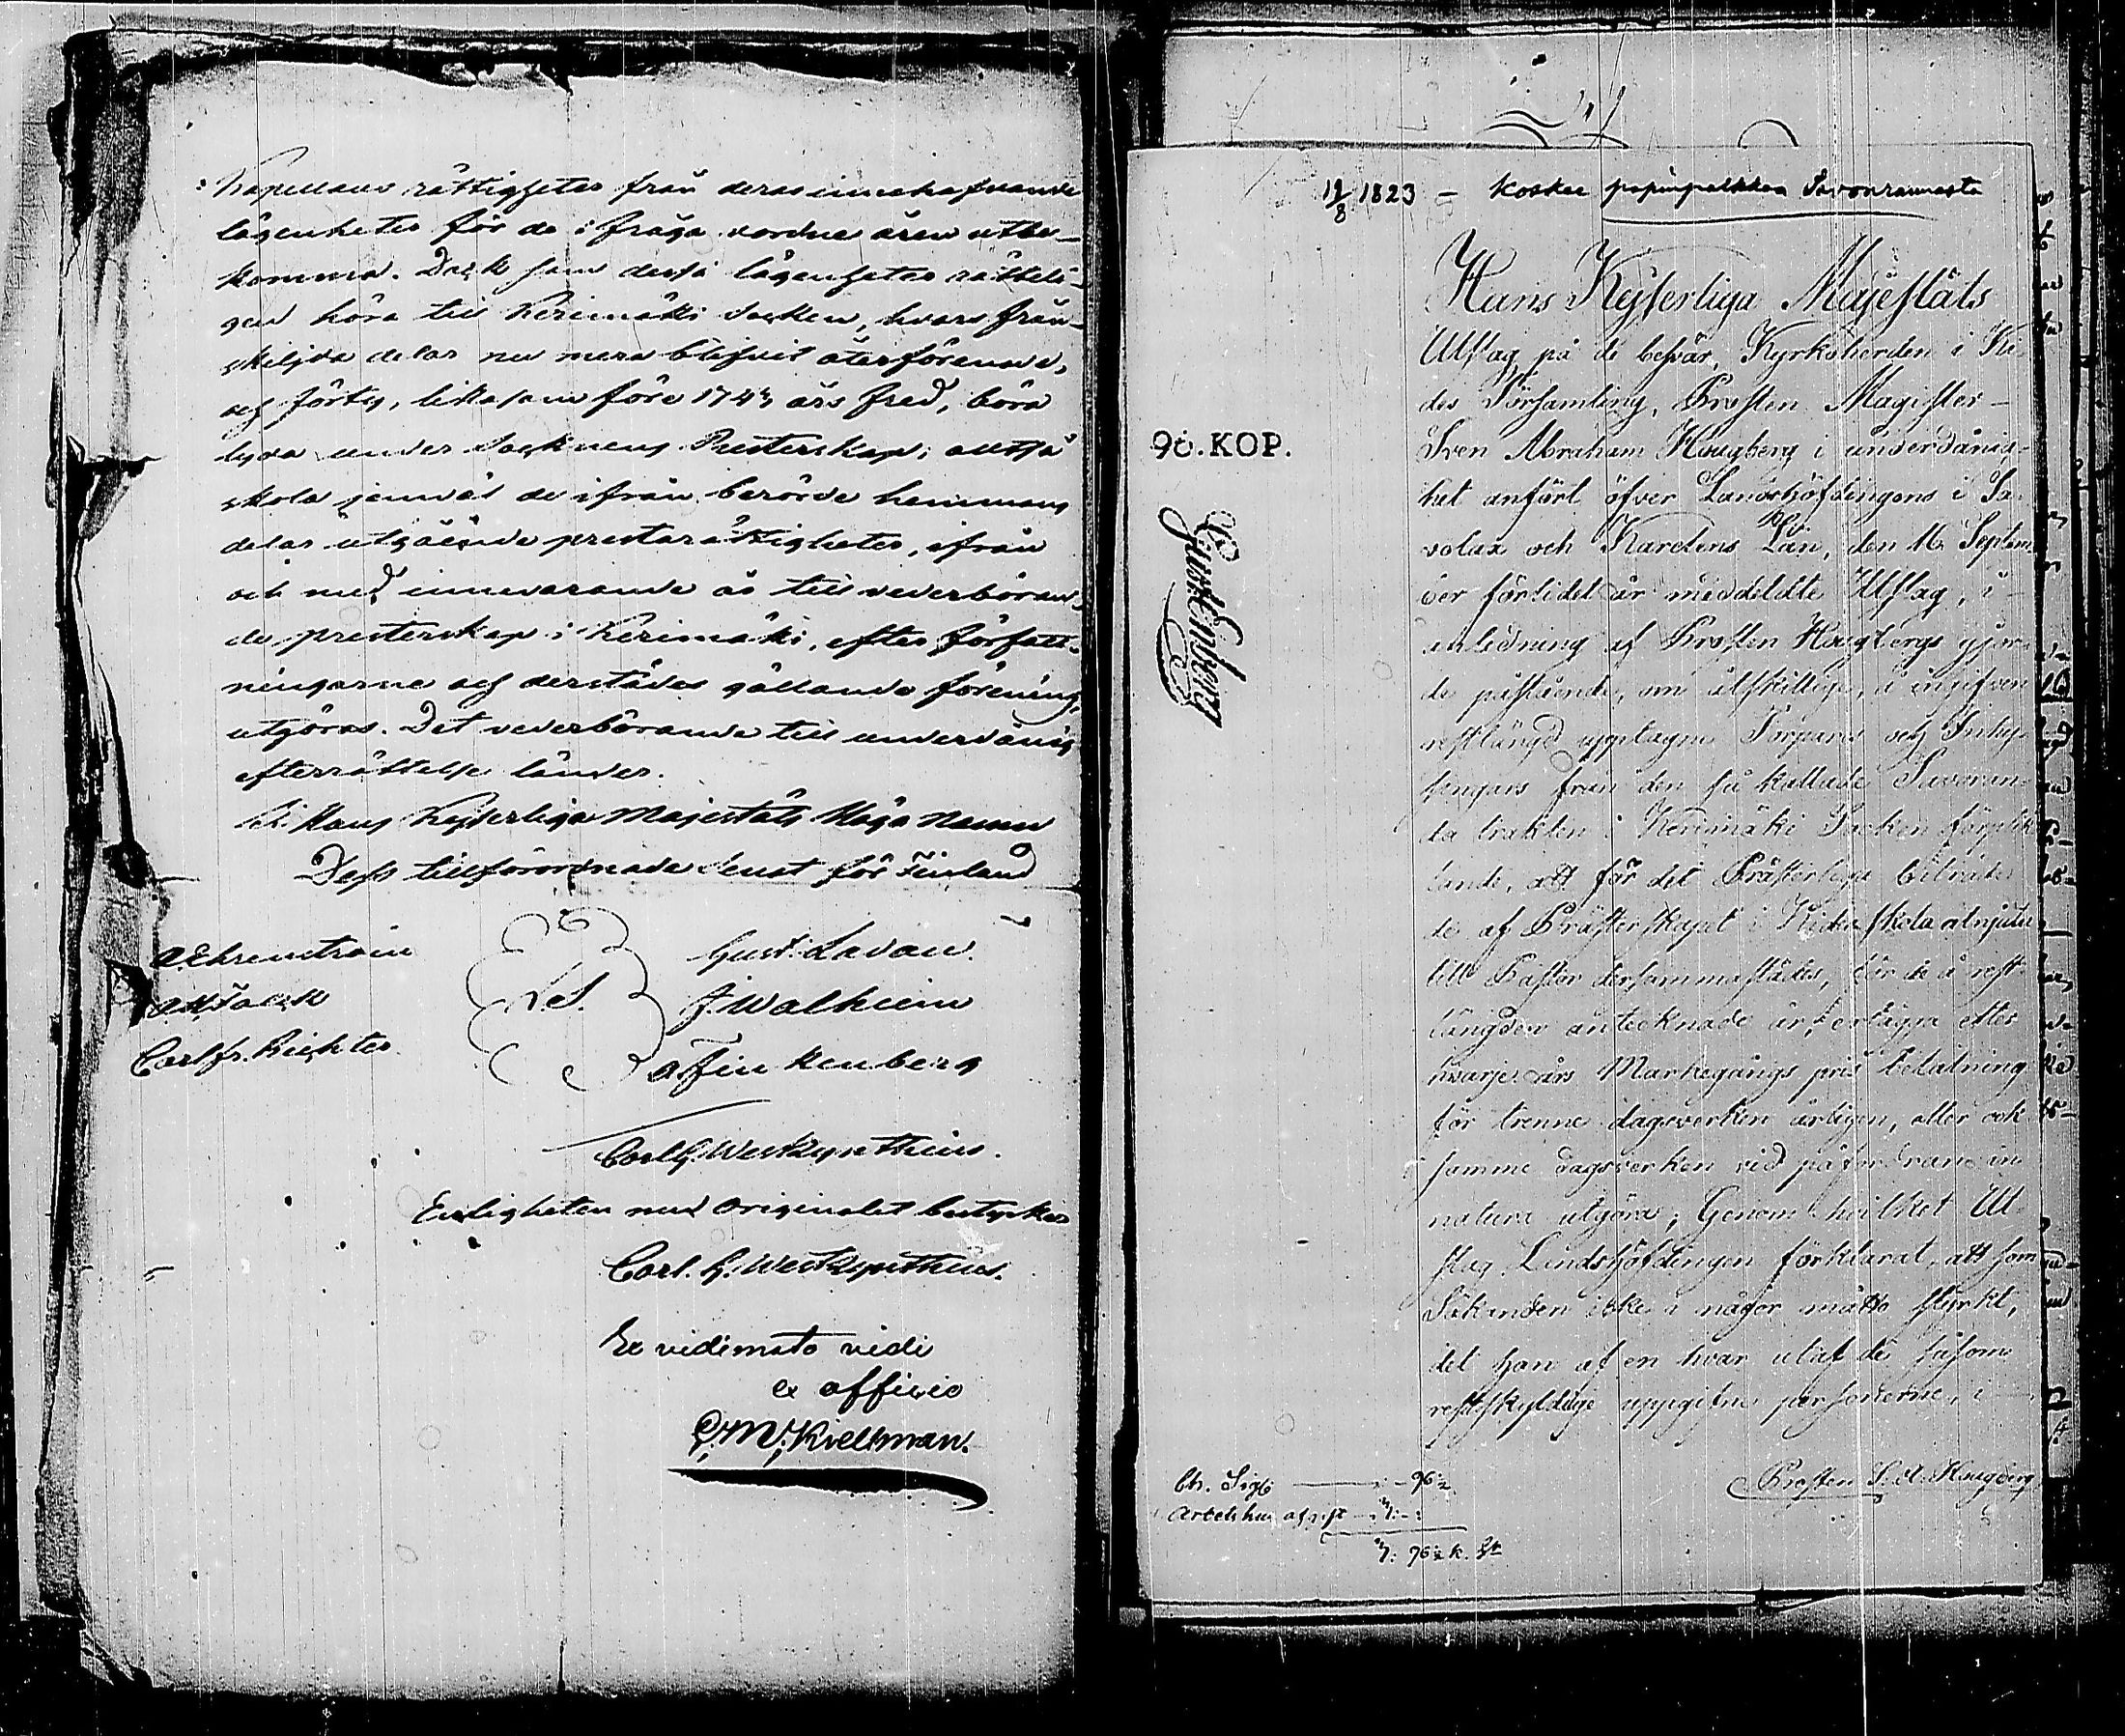 Kapellans rättigheter från deras innehafvande
lägenheter för de i fråga vordne åren utbe-
komma. Dock som dessa lägenheter rätteli-
gen höra till Kerimäki Socken, hvars från-
skiljda delar nu mera blifvit återförenade,
och förty, likasom före 1743 års fred, böra
lyda under Socknens Presterskap; altså
skola jemväl de ifrån berörde hemmans
delar utgående prestarättigheter, ifrån
och med innevarande år till vederböran-
de presterskap i Kerimäki, efter författ-
ningarne och derstädes gällande förening,
utgöras. Det vederbörande till underdånig
efterrättelse länder.
I Hans Kejserliga Majestäts Höga Namn
Dess tillförordnade Senat för Finland
A. Ehrenström
Gust. Ladau.
L.S.
J. Walheim
Carl fr. Richter
A Finkenberg
Carl G. Westzynthius.
Enligheten med Originalet bestyrker
Carl. G. Westzynthius.
Ex vidimato vidi
ex officio
Kiellman.
19/8 1823 – Koskee papinpalkkaa Savonrannasta
Hans Kejserliga Majestäts
Utslag på de besvär, Kyrkoherden i Ki-
des Församling, Prosten Magister
Sven Abraham Hougberg i underdånig-
het anfört öfver Landshöfdingens i Sa-
volax och Karelens Län, den 16 Septem-
ber förlidet år meddeldte Utslag, i
anledning af Prosten Hougbergs gjor-
de påstående, om åtskillige, å ingifven
restlängd upptagne Torpares och Inhys-
hingars från den så kallade Savoran-
da trakten i Kerimäki Socken förplik-
tande, att för det Prästerliga biträde
de af Prästerskapet i Kides skola åtnjuta
till Pastor dersammastädes, för de å rest-
längden antecknade år, erlägga efter
hvarje års Markegångs pris betalning
för trenne dagsverken årligen, eller ock
samme dagsverken vid påfordran in
natura utgöra; Genom hvilket Ut-
slag Landshöfdingen förklarat, att som
Sökanden icke i någor måtto styrkt,
det han af en hvar utaf de såsom
restskyldige uppgifne personerne, i
90. KOP.
Ch. Sigl. – 96½
Prosten S. A. Hougberg